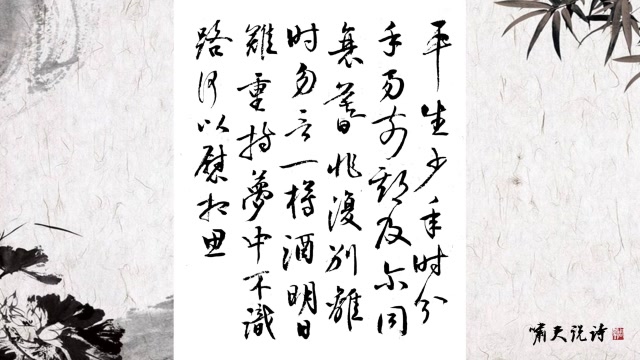 平生少年时分
手易前期及尔同
衰暮非復别離
时勿言一樽酒明日
難重持夢中不識
路何以慰相思
嘯天说诗